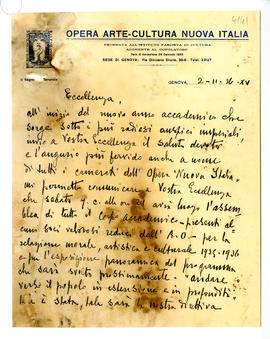 4141
OPERA ARTE-CULTURA NUOVA ITALIA
ADERENTE AL DOPOLAVORO
SEDE DI GENOVA: Via Giovanni Giusto, 36-6 - Telef.
GENOVA, 2-11-36-XV
Eccellenza,
all'inizio del nuovo anno accademico che
sorge sotto i più radiosi auspici imperiali,
invio a Vostra Eccellenza il saluto devoto
e l'augurio più fervido anche a nome
di tutti i camerati dell'Opera Nuova Italia.
mi permetto comunicare a Vostra Eccellenza
che sabato 7 c. alle ore 21 avrà luogo l'assem-
blea di tutto il Corpo accademico - presenti al-
cuni soci valorosi reduci dall'A.O. - per la
relazione morale, artistica e culturale 1935-1936
e per l'esposizione panoramica del programma
che sarà svolto prossimamente - "andare
verso il popolo in estensione e in profondità"
è stata, tale sarà la nostra direttiva